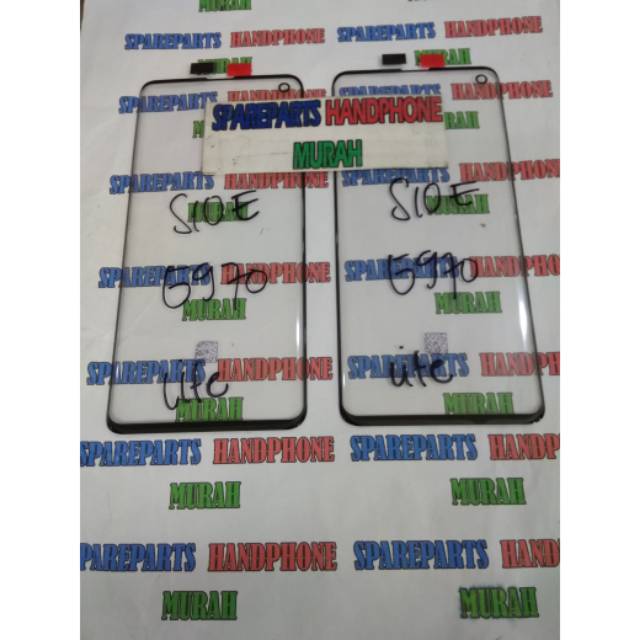 MURAH
MURAH
SPAREPARTS HANDPHONE SPAREPARTS HANDPHONE
MURAH
SPAREPARTS HANDPHONE
MURAH
SPAREPARTS HANDPHONE SPAREPARTS HANDPHO
S10E S10E
MURAH MURAH
SPAREPARTS HANDPHONE SPAREPARTS HANDPHO
G970 G970
MURAH MURAH
SPAREPARTS HANDPHONE SPAREPARTS HANDPH
Lite Lite
MURAH MURAH
SPAREPARTS HANDPHONE SPAREPARTS HAND
MURAH MURAH
SPAREPARTS HANDPHONE SPAREPARTS HAND
MURAH MURAH